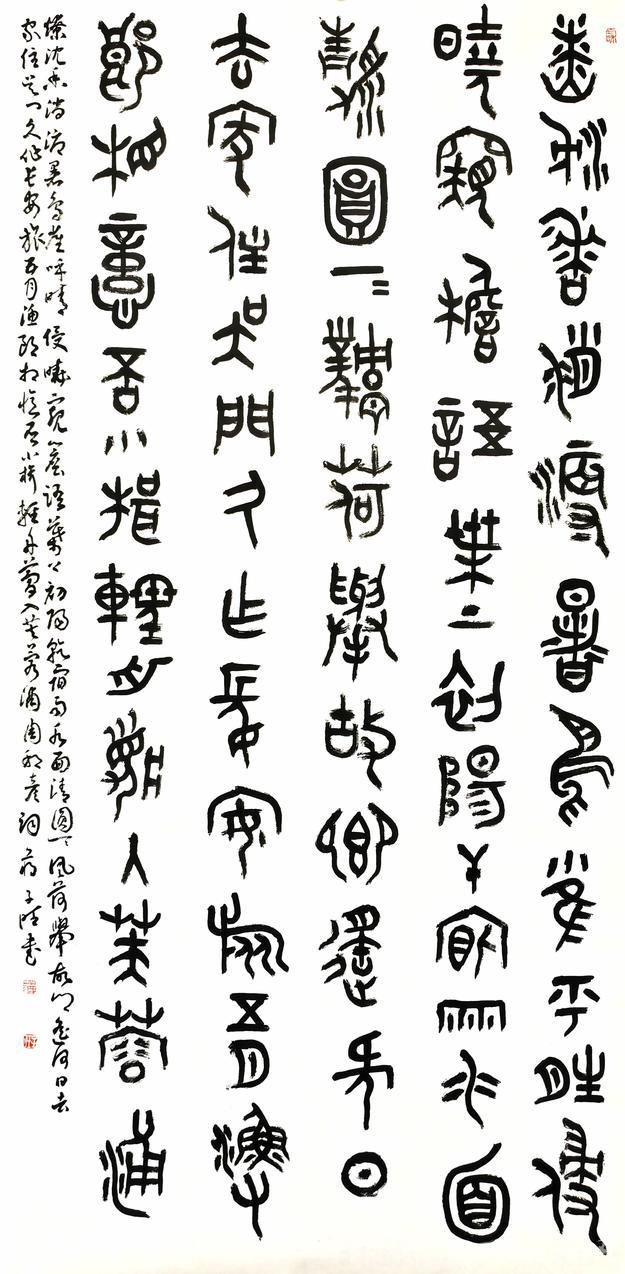 燎沈香消溽暑鳥雀乎晴侵
曉窺檐語葉上初陽干宿雨水面
清圓一一風荷舉故鄉遙何日
去家住吳門久乍長安旅五月漁
郎相憶否小楫輕舟夢入芙蓉浦
燎沈香消溽暑鳥雀呼晴侵曉窺簷語葉上初陽乾宿雨水面清圓一一風荷舉故鄉遙何日去
家住吳門久作長安旅五月漁郎相憶否小楫輕舟夢入芙蓉浦周邦彦詞